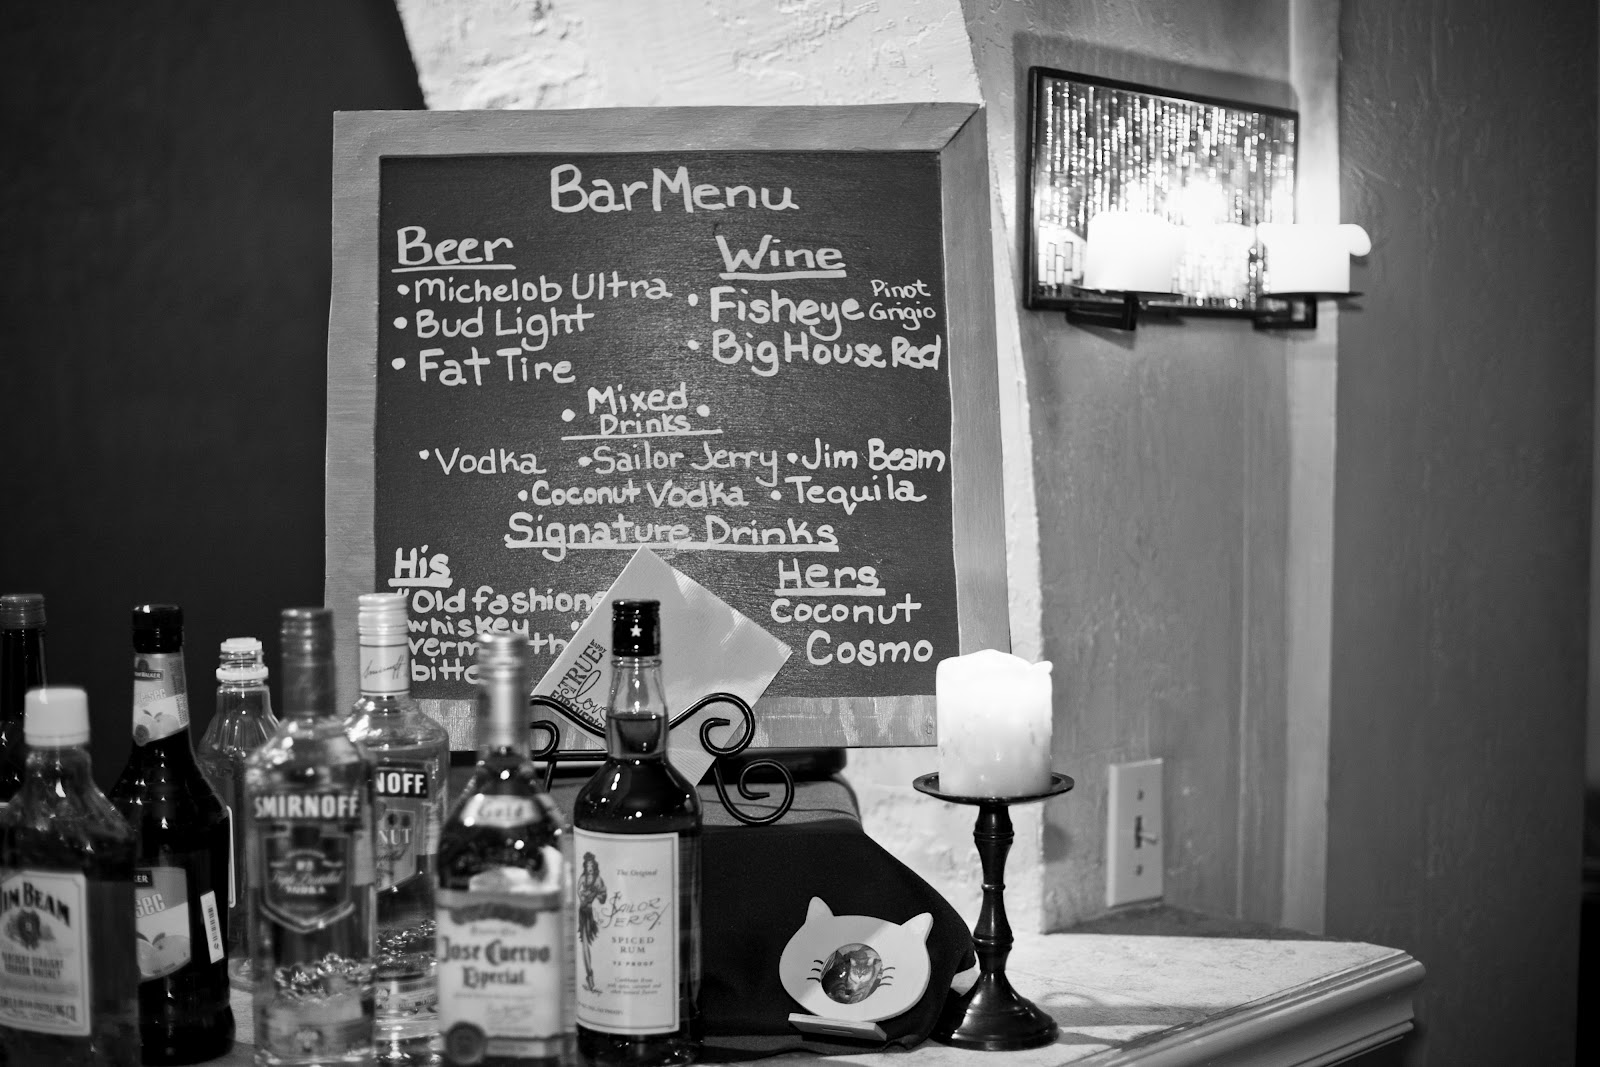 Bar Menu
Beer
• Michelob Ultra
• Bud Light
• Fat Tire
Wine
• Fisheye Pinot Grigio
• Big House Red
• Mixed •
Drinks
• Vodka • Sailor Jerry • Jim Beam
• Coconut Vodka • Tequila
Signature Drinks
His
"Old fashion
whiskey
verm
bitte
Hers
Coconut
Cosmo
TRUE
love
SMIRNOFF
VODKA
NOFF.
NUT
JIM BEAM
SEC
Gold
Jose Cuervo
Especial
The Original
SAILOR
JERRY
SPICED
RUM
92 PROOF